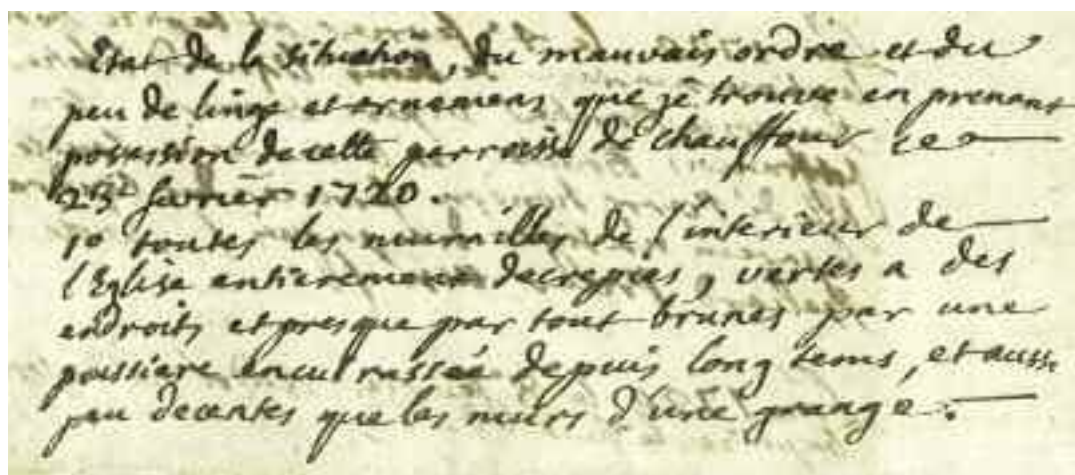 Etat de la situation, du mauvais ordre et du
peu de linge et ornemens que je trouve en prenant
possession de cette parroisse de chauffour ce
25e fevrier 1720.
1º toutes les murailles de l'interieur de
l'Eglise entierement decrepies, vertes a des
endroits et presque par tout brunes par une
poussiere encurassée depuis long tems, et aussi
peu decentes que les murs d'une grange.